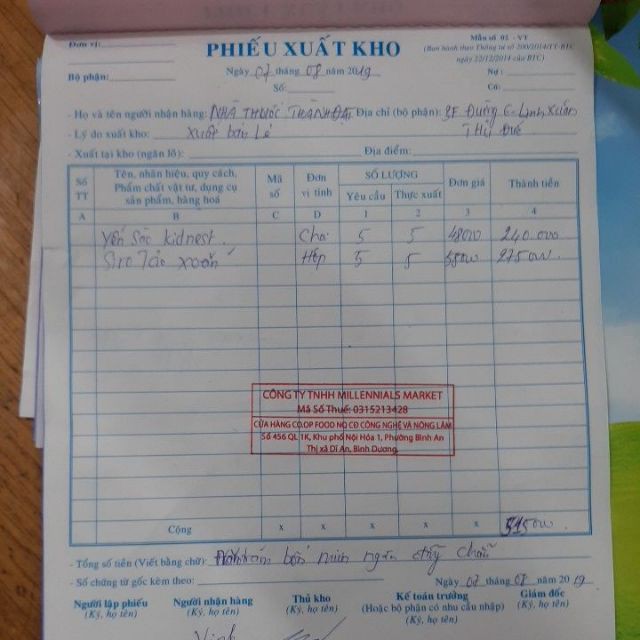 Đơn vị:
Bộ phận:
PHIẾU XUẤT KHO
Ngày 07 tháng 08 năm 2019
Số:
Mẫu số 02 - VT
(Ban hành theo Thông tư số 200/2014/TT-BTC
ngày 22/12/2014 của BTC)
Nợ :
Có :
- Họ và tên người nhận hàng: NHÀ THUỐC THÀNH ĐẠT Địa chỉ (bộ phận): Đường 6 - Linh Xuân
Thủ Đức
- Lý do xuất kho: Xuất bán lẻ
- Xuất tại kho (ngăn lô): Địa điểm:
Số TT Tên, nhãn hiệu, quy cách, Phẩm chất vật tư, dụng cụ sản phẩm, hàng hoá Mã số Đơn vị tính SỐ LƯỢNG Yêu cầu Thực xuất Đơn giá Thành tiền
A B C D 1 2 3 4
Yến Sào kidnest Chai 5 5 48000 240.000
Siro Táo xoắn Hộp 5 5 55000 275000
CÔNG TY TNHH MILLENNIALS MARKET
Mã Số Thuế: 0315213428
CỬA HÀNG CO.OP FOOD NO CĐ CÔNG NGHỆ VÀ NÔNG LÂM
Số 456 QL 1K, Khu phố Nội Hóa 1, Phường Bình An
Thị xã Dĩ An, Bình Dương
Cộng x x x x x 515000
- Tổng số tiền (Viết bằng chữ): ngàn chẵn
- Số chứng từ gốc kèm theo:
Ngày 07 tháng 08 năm 2019
Người lập phiếu Người nhận hàng Thủ kho Kế toán trưởng Giám đốc
(Ký, họ tên) (Ký, họ tên) (Ký, họ tên) (Hoặc bộ phận có nhu cầu nhập) (Ký, họ tên)
(Ký, họ tên)
Vinh